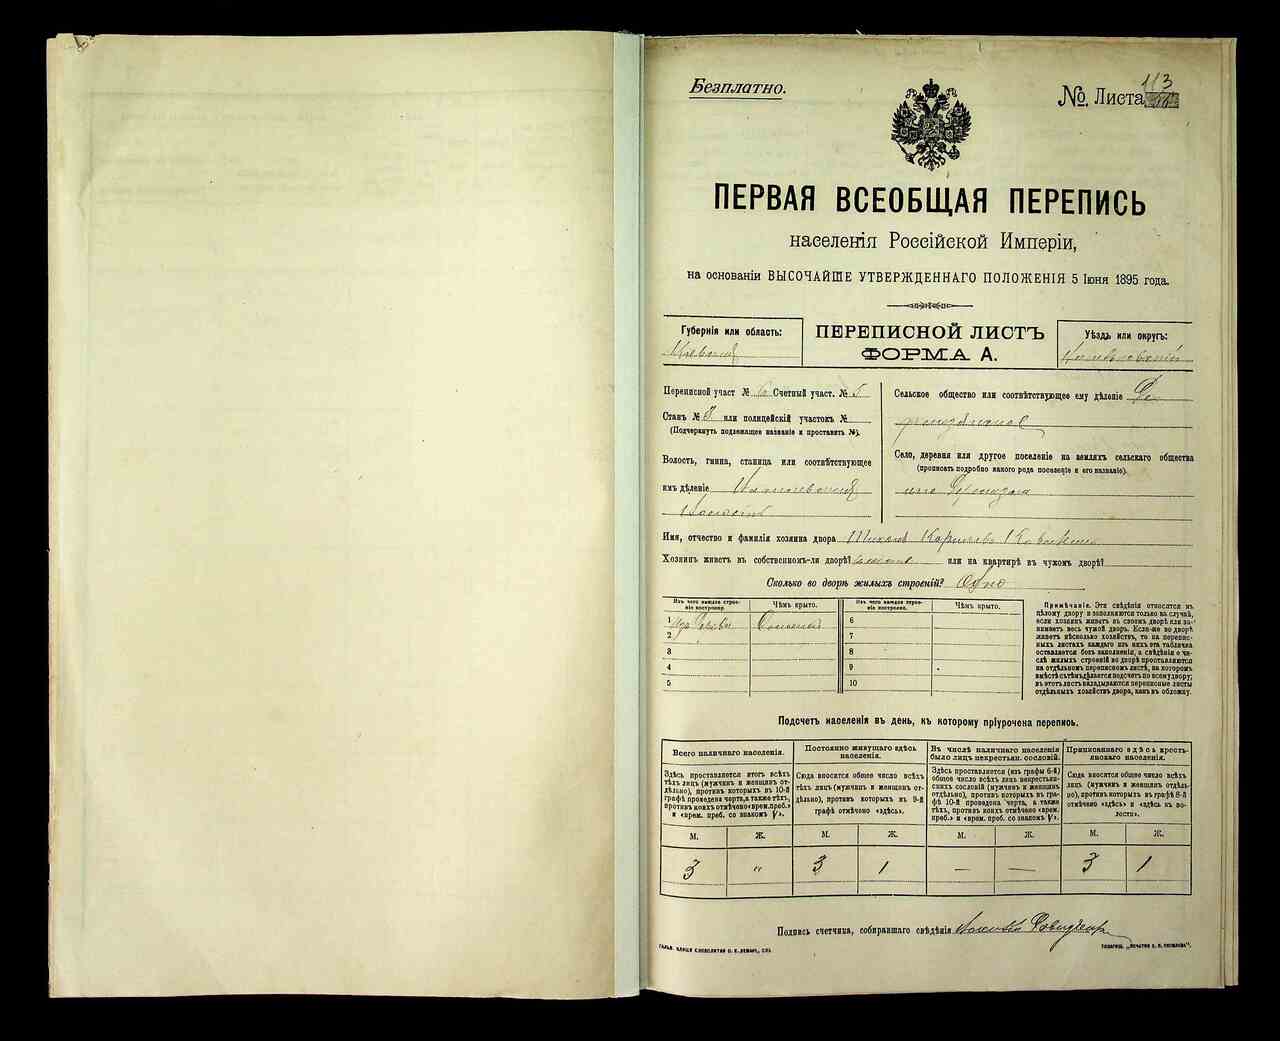 Безплатно.
№. Листа 113
ПЕРВАЯ ВСЕОБЩАЯ ПЕРЕПИСЬ
населенія Россійской Имперіи,
на основаніи ВЫСОЧАЙШЕ УТВЕРЖДЕННАГО ПОЛОЖЕНІЯ 5 Іюня 1895 года.
Губернія или область:
Кіевская
ПЕРЕПИСНОЙ ЛИСТЪ
ФОРМА А.
Уѣздъ или округъ:
Переписной участ № 6 Счетный участ. № 5
Станъ № или полицейскій участокъ №
(Подчеркнуть подлежащее названіе и проставить №).
Волость, гмина, станица или соотвѣтствующее
имъ дѣленіе
Сельское общество или соотвѣтствующее ему дѣленіе
Село, деревня или другое поселеніе на земляхъ сельскаго общества
(прописать подробно какого рода поселеніе и его названіе).
Имя, отчество и фамилія хозяина двора
Хозяинъ живетъ въ собственномъ-ли дворѣ? или на квартирѣ въ чужомъ дворѣ?
Сколько во дворѣ жилыхъ строеній? Одно
Изъ чего каждое строеніе построено.
Чѣмъ крыто.
Изъ чего каждое строеніе построено.
Чѣмъ крыто.
1 Изъ дерева Соломой 6
2 7
3 8
4 9
5 10
Примѣчаніе. Эти свѣдѣнія относятся къ
цѣлому двору и заполняются только въ случаѣ,
если хозяинъ живетъ въ своемъ дворѣ или занимаетъ
весь чужой дворъ. Если-же во дворѣ
живетъ нѣсколько хозяйствъ, то на переписныхъ
листахъ каждаго изъ нихъ эта табличка
оставляется безъ заполненія, а свѣдѣнія о числѣ
жилыхъ строеній во дворѣ проставляются
на отдѣльномъ переписномъ листѣ, на которомъ
вмѣстѣ съ тѣмъ дѣлается подсчетъ по всему двору;
въ этотъ листъ вкладываются переписные листы
отдѣльныхъ хозяйствъ двора, какъ въ обложку.
Подсчетъ населенія въ день, къ которому пріурочена перепись.
Всего наличнаго населенія.
Здѣсь проставляется итогъ всѣхъ
тѣхъ лицъ (мужчинъ и женщинъ отдѣльно),
противъ которыхъ въ 10-й
графѣ проведена черта, а также тѣхъ,
противъ коихъ отмѣчено «врем. преб.»
и «врем. преб. со знакомъ V».
Постоянно живущаго здѣсь
населенія.
Сюда вносится общее число всѣхъ
тѣхъ лицъ (мужчинъ и женщинъ отдѣльно),
противъ которыхъ въ 9-й
графѣ отмѣчено «здѣсь».
Въ числѣ наличнаго населенія
было лицъ некрестьян. сословій.
Здѣсь проставляется (изъ графы 6-й)
общее число всѣхъ лицъ некрестьянскихъ
сословій (мужчинъ и женщинъ
отдѣльно), противъ которыхъ въ графѣ
10-й проведена черта, а также
тѣхъ, противъ коихъ отмѣчено «врем.
преб.» и «врем. преб. со знакомъ V».
Приписаннаго здѣсь крестьянскаго
населенія.
Сюда вносится общее число всѣхъ
лицъ (мужчинъ и женщинъ отдѣльно),
противъ которыхъ въ графѣ 8-й
отмѣчено «здѣсь» и «здѣсь въ волости».
М. Ж. М. Ж. М. Ж. М. Ж.
3 " 3 1 — — 3 1
Подпись счетчика, собиравшаго свѣдѣнія